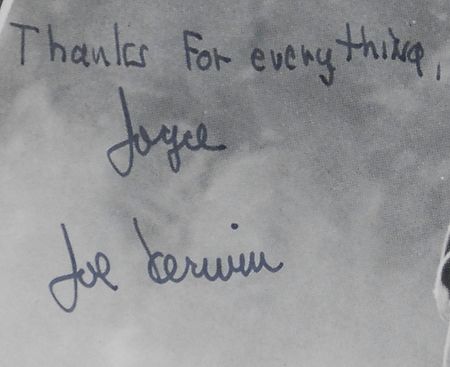 Thanks For everything,
Joyce
Joe Kerwin